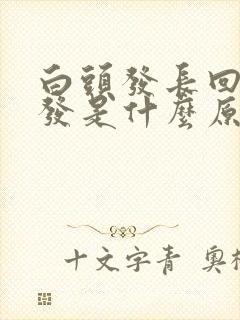 白頭發長回
發是什麼原
十文字青 奧村